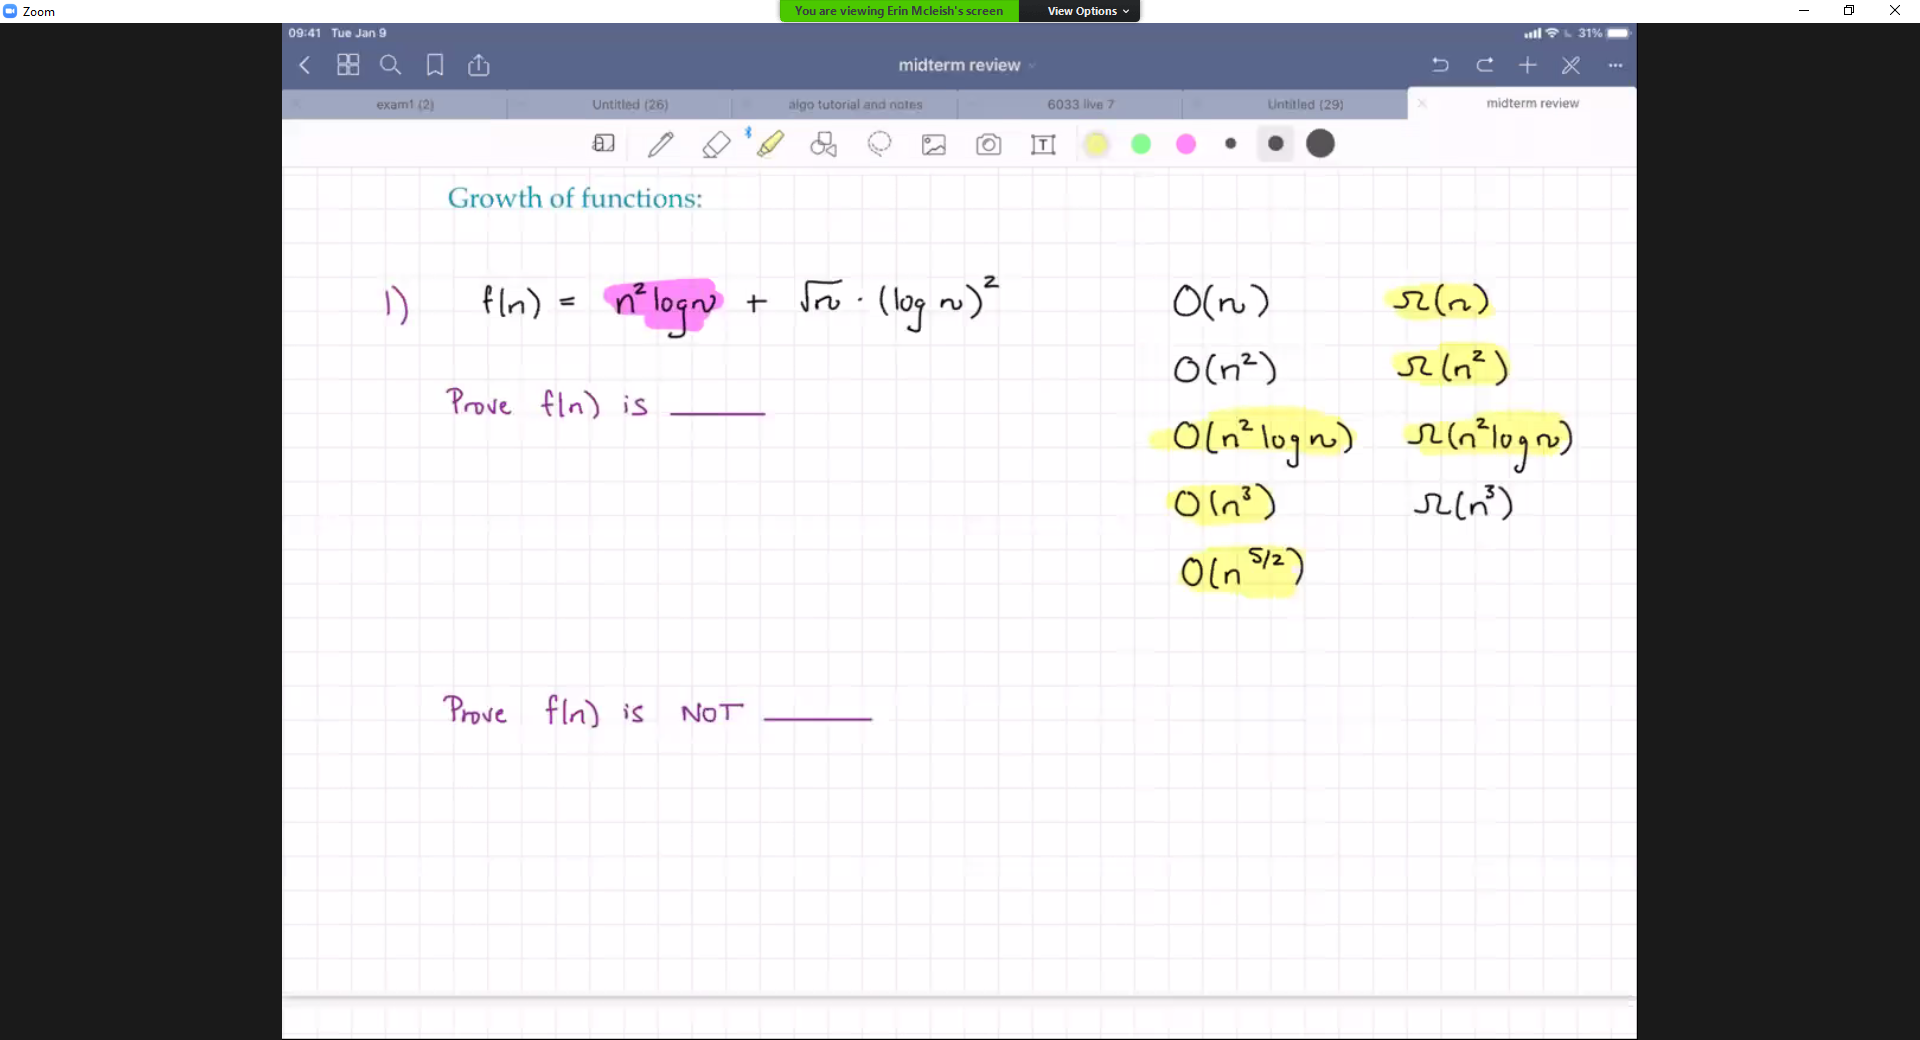 Zoom
You are viewing Erin Mcleish's screen View Options
09:41 Tue Jan 9 31%
midterm review
exam1 (2) Untitled (26) algo tutorial and notes 6033 live 7 Untitled (29) midterm review
T
Growth of functions:
1) f(n) = n² log n + √n · (log n)²
O(n) Ω(n)
O(n²) Ω(n²)
Prove f(n) is ____
O(n² log n) Ω(n² log n)
O(n³) Ω(n³)
O(n^5/2)
Prove f(n) is NOT ____